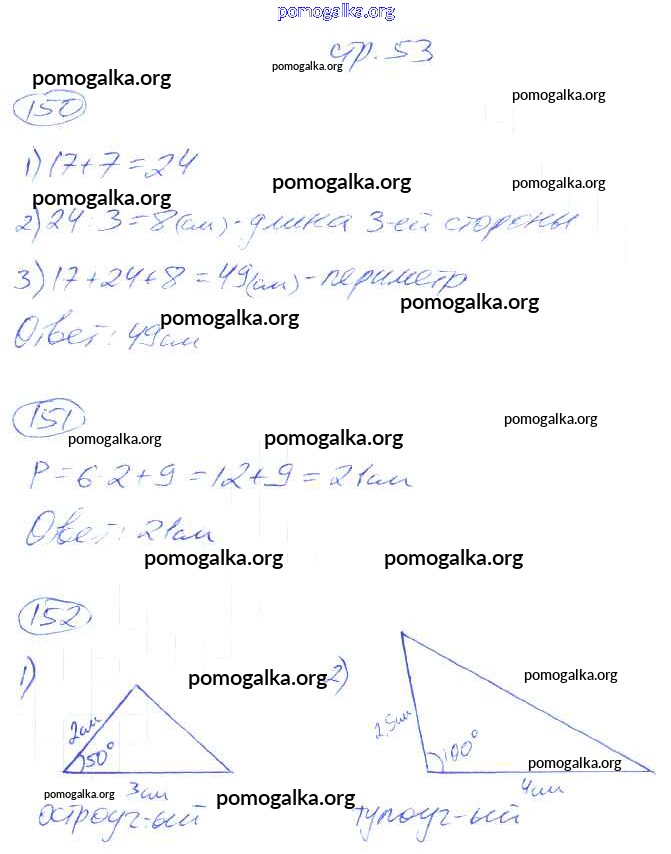 pomogalka.org
стр. 53
pomogalka.org
pomogalka.org
pomogalka.org
150
1) 17+7=24
pomogalka.org
pomogalka.org
pomogalka.org
2) 24:3=8(см)-длина 3-ей стороны
3) 17+24+8=49(см)-периметр
pomogalka.org
pomogalka.org
Ответ: 49см
151
pomogalka.org
pomogalka.org
pomogalka.org
P=6·2+9=12+9=21см
Ответ: 21см
pomogalka.org
pomogalka.org
152
1)
pomogalka.org
2)
pomogalka.org
2см
50°
2,5см
100°
pomogalka.org
3см
4см
pomogalka.org
pomogalka.org
остроуг-ый
тупоуг-ый